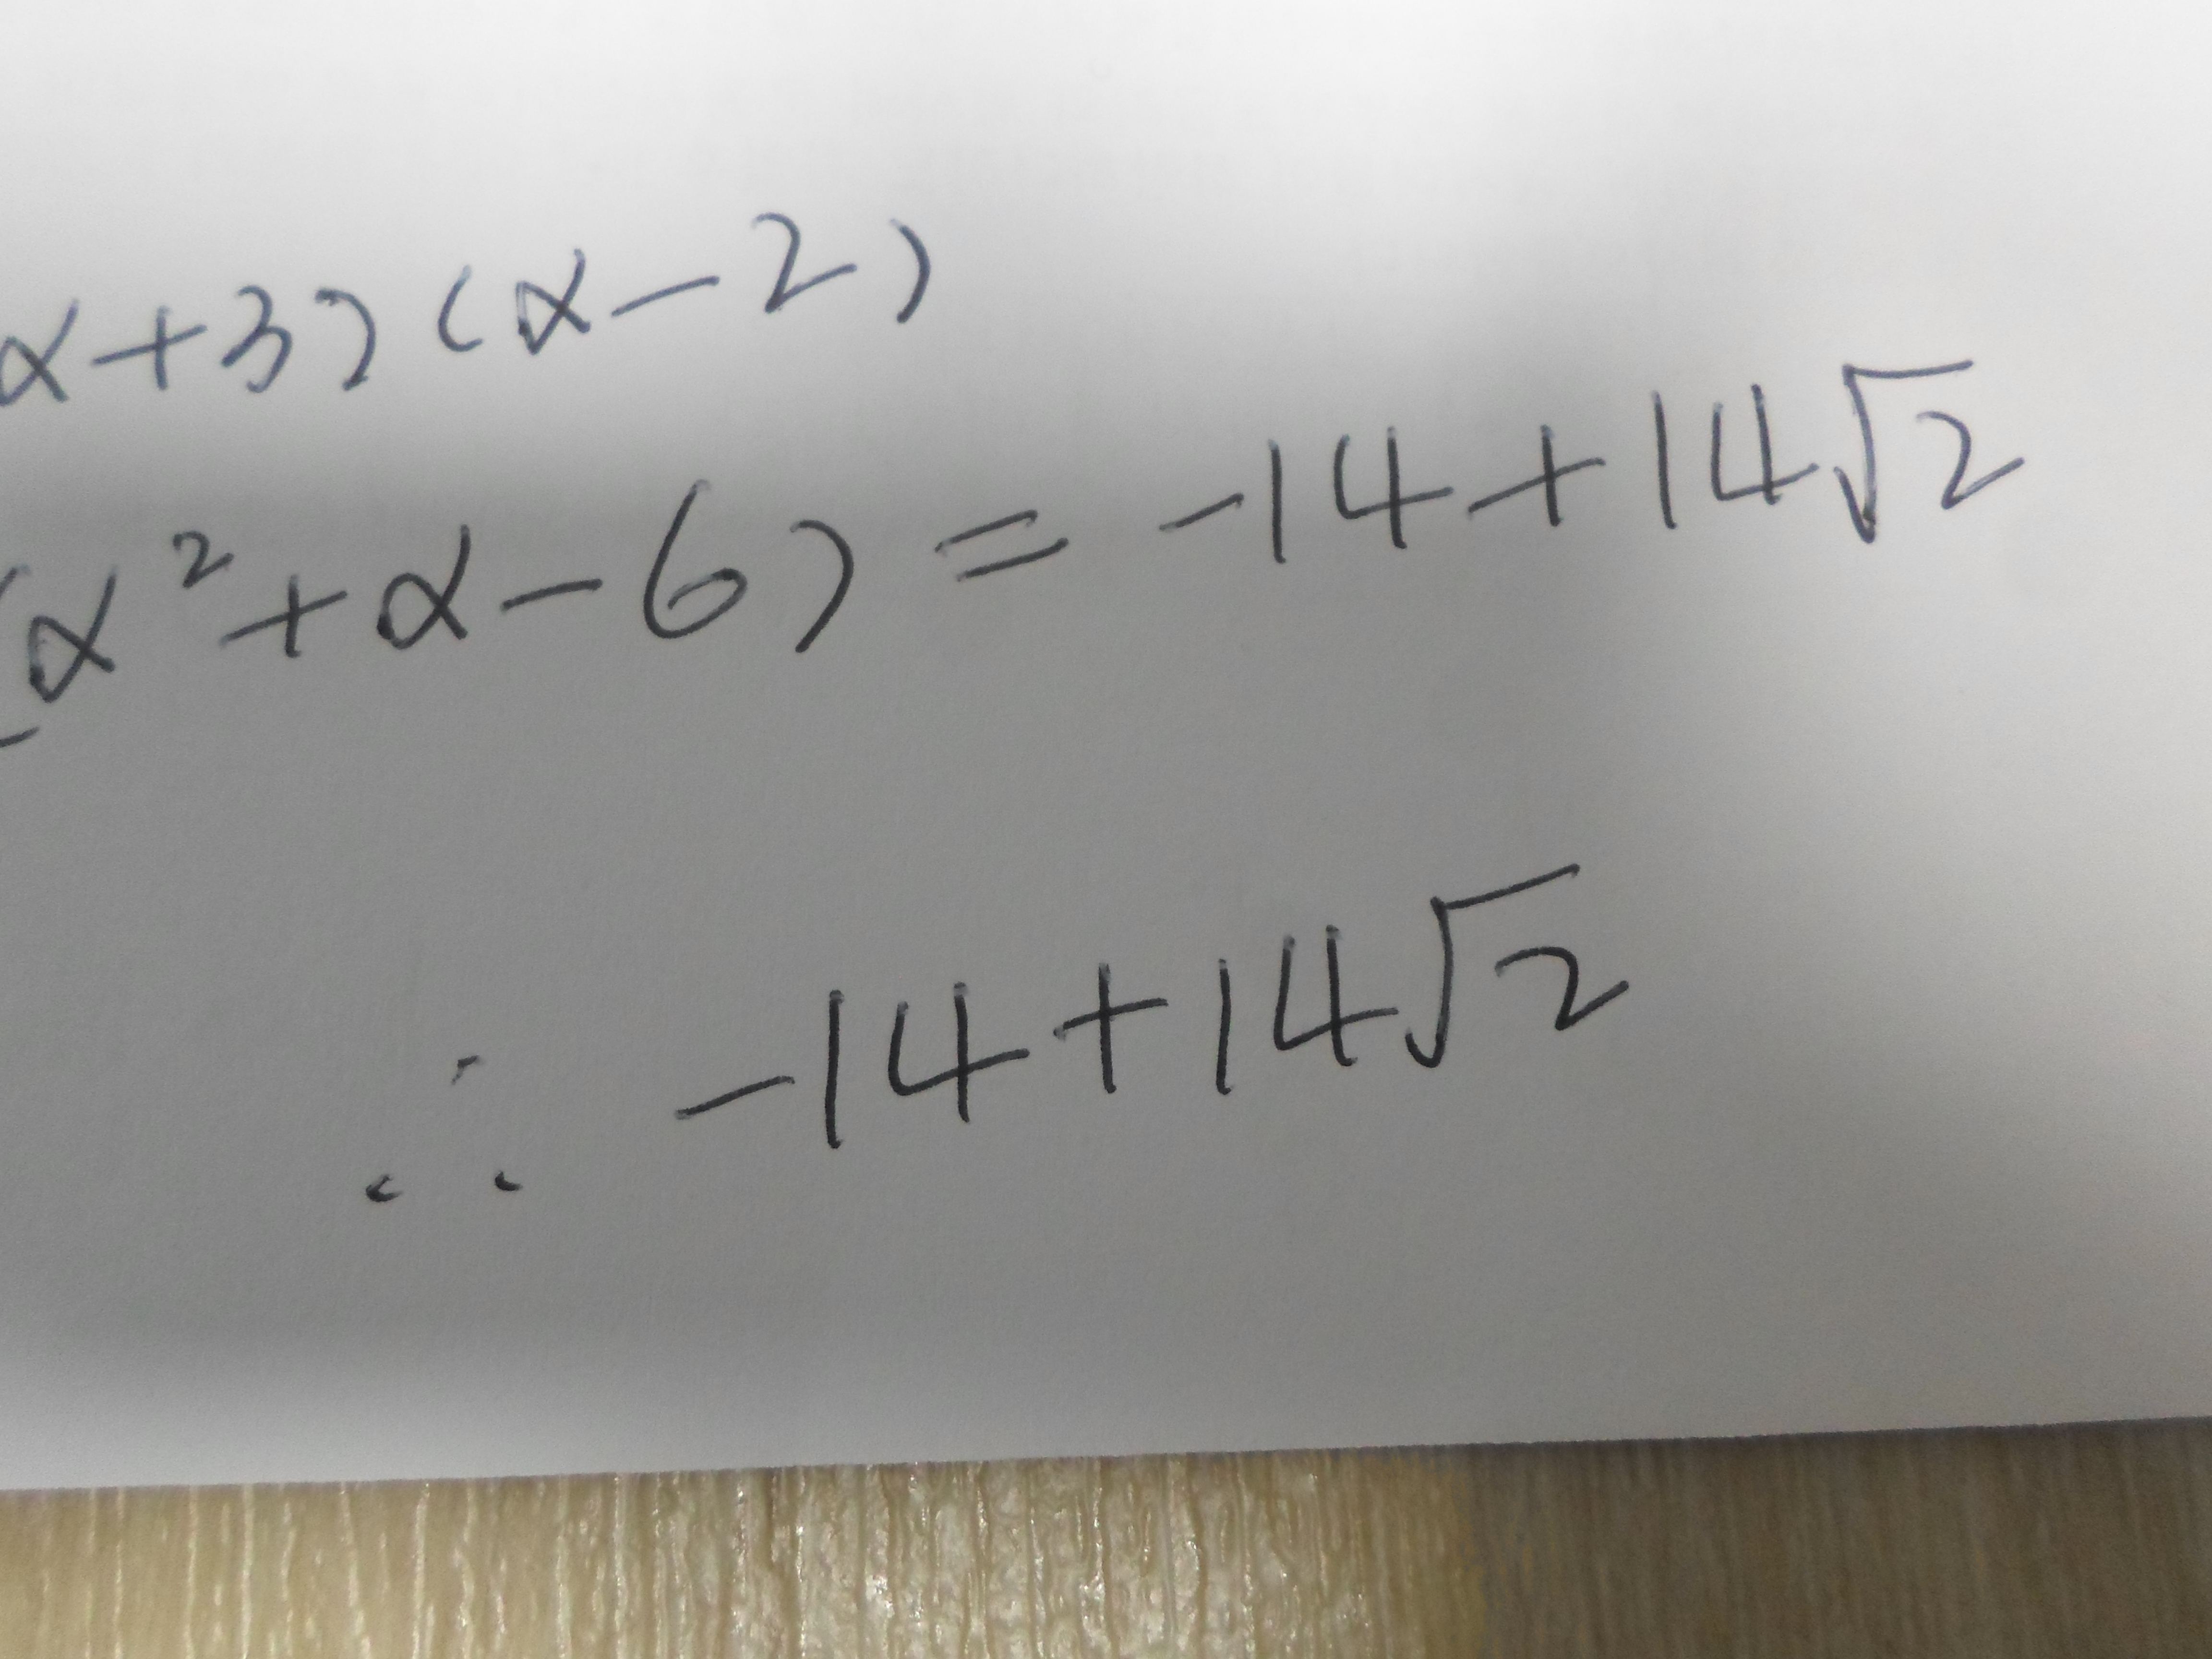 α+3)(α-2)
(α²+α-6) = -14+14√2
∴ -14+14√2